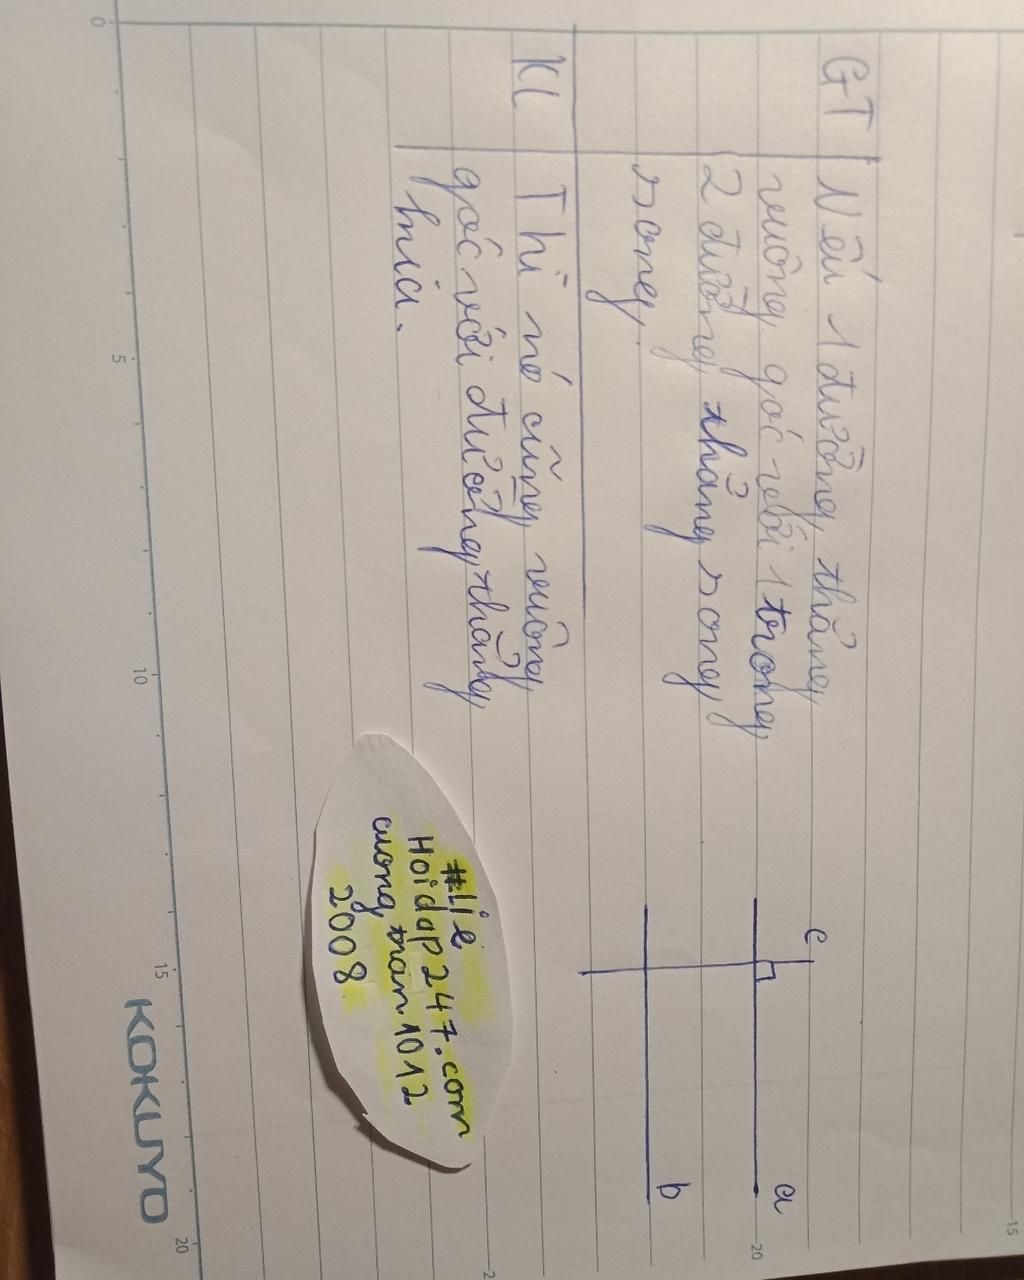 GT
Nếu 1 đường thẳng
vuông góc với 1 trong
2 đường thẳng song
song,
KL
Thì nó cũng vuông
góc với đường thẳng
kia.
c
a
b
#Lie
Hoidap247.com
cuong tran 1012
2008
KOKUYO
0
5
10
15
20
20
15
2